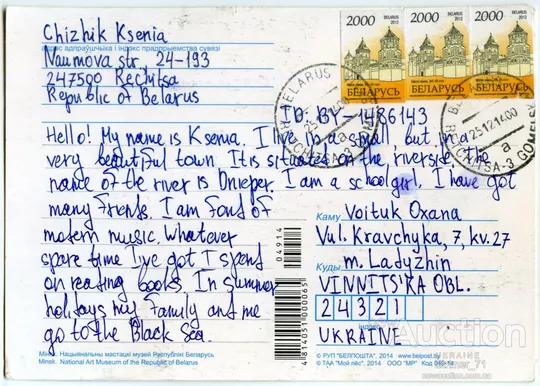 Chizhik Ksenia
індэкс адпраўшчыка і індэкс прадпрыемства сувязі
Naumova str, 24-193
247500 Rechitsa
Republic of Belarus
2000 BELARUS 2013
2000 BELARUS 2013
2000 BELARUS 2013
БЕЛАРУСЬ
БЕЛАРУСЬ
БЕЛАРУСЬ
ID: BY-1486143
Hello! My name is Ksenia. I live in a small, but in a
very beautiful town. It is situated on the riverside. The
name of the river is Dnieper. I am a schoolgirl. I have got
many friends. I am fond of
modern music. Whatever
spare time I've got I spend
on reading books. In summer
holidays my family and me
go to the Black Sea.
BELARUS
RECHITSA-3
а
BELARUS
25121400
а
RECHITSA-3 GOMEL
04914
4814035100000065
Каму Voituk Oxana
Vul. Kravchyka, 7, kv. 27
Куды m. Ladyzhin
VINNITS'KA OBL.
24321
індэкс
UKRAINE
Мінск. Нацыянальны мастацкі музей Рэспублікі Беларусь
Minsk. National Art Museum of the Republic of Belarus
© РУП "БЕЛПОШТА", 2014 www.belpost.by
© ТАА "Мой лёс", 2014 ООО "МР" Код 049-14
Auction
UKRAINE
_71